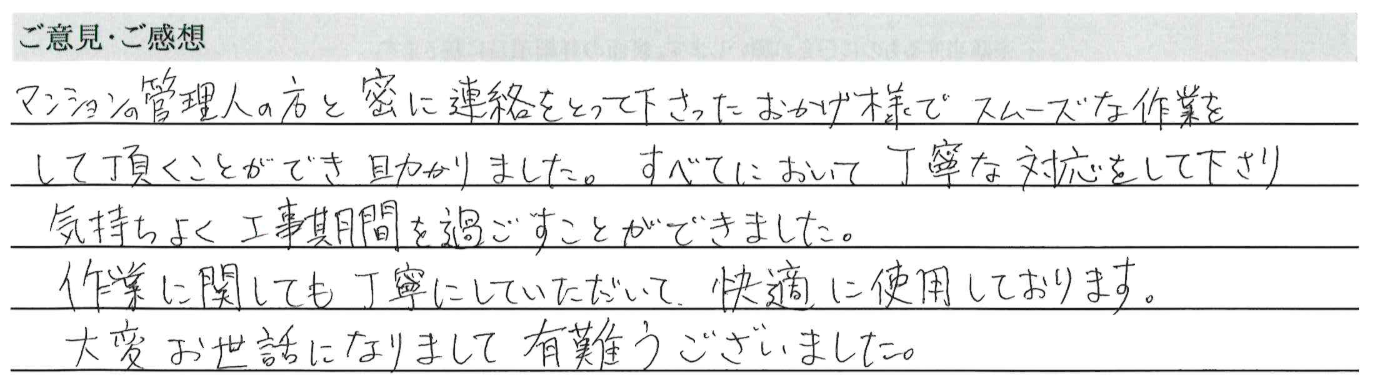 ご意見・ご感想
マンションの管理人の方と密に連絡をとって下さったおかげ様でスムーズな作業を
して頂くことができ助かりました。すべてにおいて丁寧な対応をして下さり
気持ちよく工事期間を過ごすことができました。
作業に関しても丁寧にしていただいて、快適に使用しております。
大変お世話になりまして有難うございました。